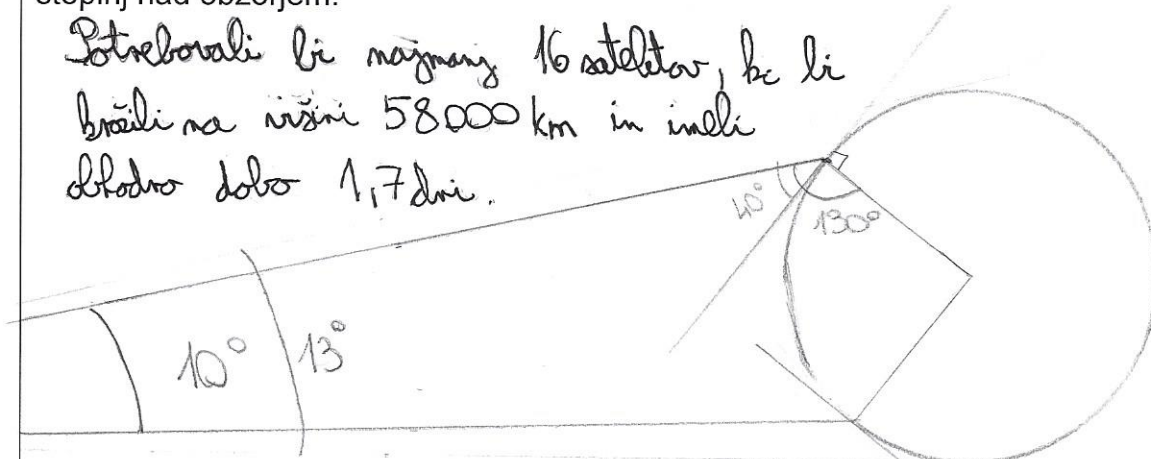 stopinj nad obzorjem.
Potrebovali bi najmanj 16 satelitov, ki bi
krožili na višini 58000 km in imeli
obhodno dobo 1,7 dni.
40°
130°
10°
13°